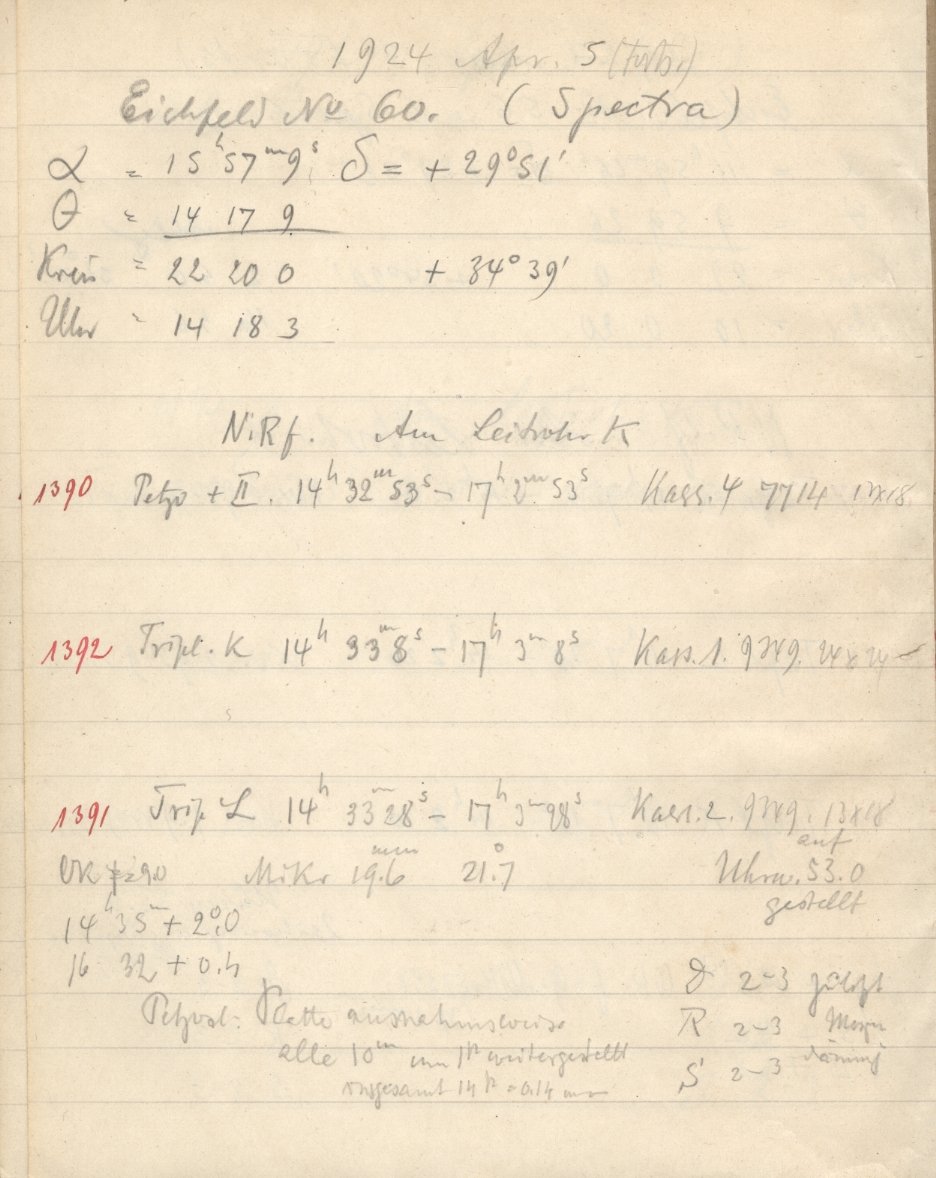 1924 Apr. 5 (Forts.)
Eichfeld No 60. (Spectra)
α = 15h 57m 9s; δ = + 29° 51'
θ = 14 17 9
Kreis = 22 20 0 + 34° 39'
Uhr = 14 18 3
N. Rf. Am Leitrohr K
1390 Petzv + II. 14h 32m 53s – 17h 2m 53s Kass. 4 7714 13x18.
1392 Tripl. K 14h 33m 8s – 17h 3m 8s Kass. 1. 9x9. 24x24
1391 Trip L 14h 33m 28s – 17h 3m 28s Kass. 2. 9x9. 13x18
Mikr 19.6mm 21.7° Uhrw. auf 53.0
gestellt
14h 35m + 2°.0
16 32 + 0.4
D 2-3 zuletzt
Petzval: Platte ausnahmsweise R 2-3 Morgen
alle 10m um 1p weitergestellt S 2-3 dämmg
insgesamt 14p = 0.14 mm